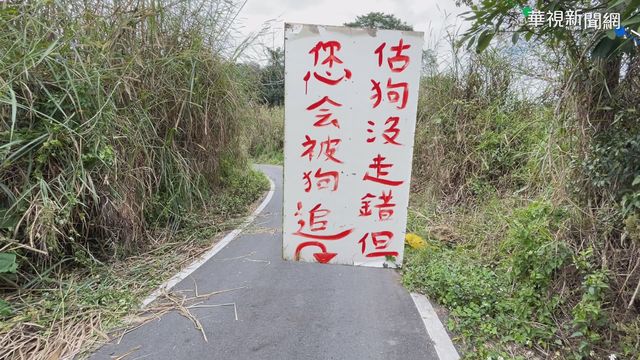 華視新聞網
估狗没走錯但
您会被狗追